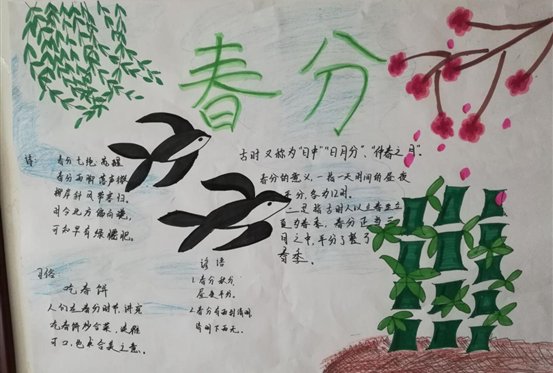 春分
古时又称为"日中""日月分"、"仲春之月"。
春分的意义,一指一天时间的昼夜
平分,各为12时。
二是指古时人以立春至立
夏为春季,春分正当三
月之中,平分了整了
春季。
诗:
春分七绝·苏醒
春分雨脚落声微
柳岸斜风带客归。
时令北方偏向晚,
可知早有绿腰肥。
习俗
吃春饼
人们在春分时节,讲究
可口,
谚语
1.春分秋分,
昼夜平分。
2.春分有雨到清明
清明下雨